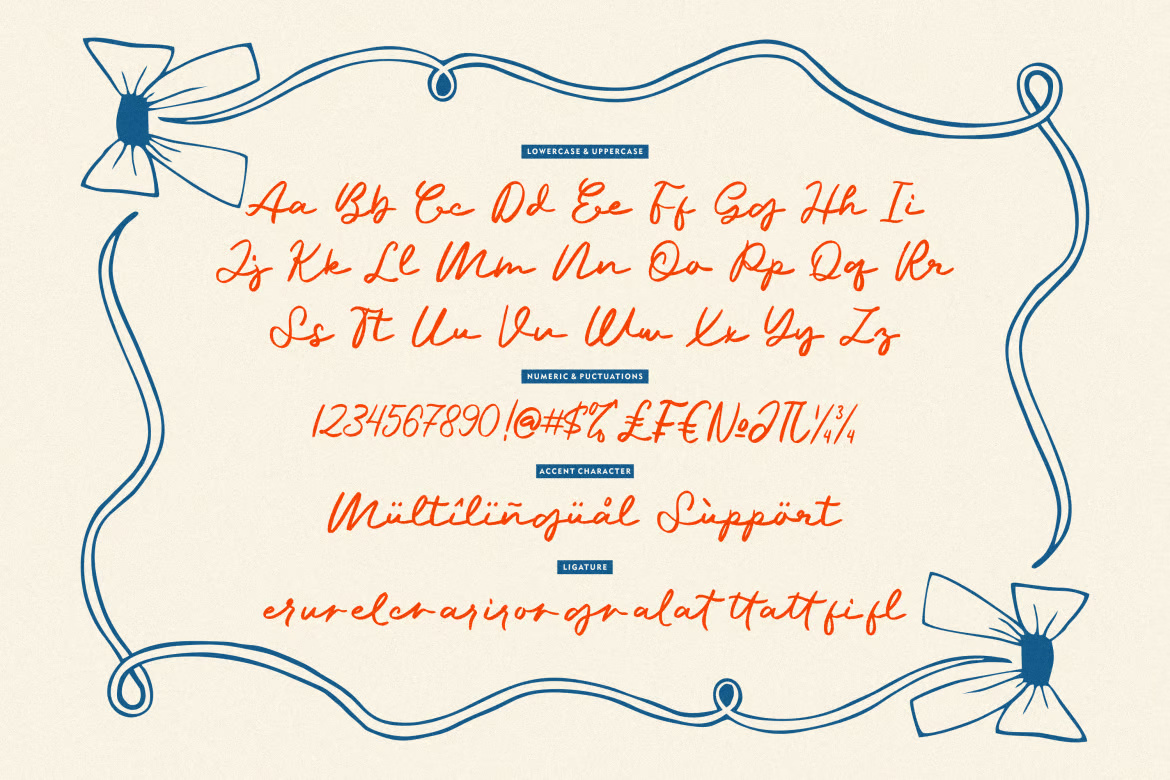 LOWERCASE & UPPERCASE
Aa Bb Cc Dd Ee Ff Gg Hh Ii
Jj Kk Ll Mm Nn Oo Pp Qq Rr
Ss Tt Uu Vv Ww Xx Yy Zz
NUMERIC & PUCTUATIONS
1234567890!@#$% £₣€№∂π¼¾
ACCENT CHARACTER
Mültîlïñgüål Sùppört
LIGATURE
erurelcrarirorgralatttattfifl